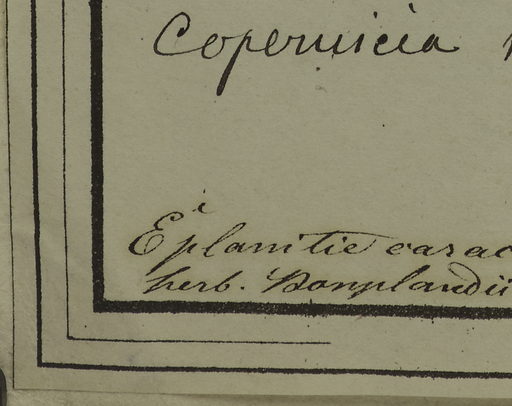 Copernicia
È planitie carac
herb. Bonplandii